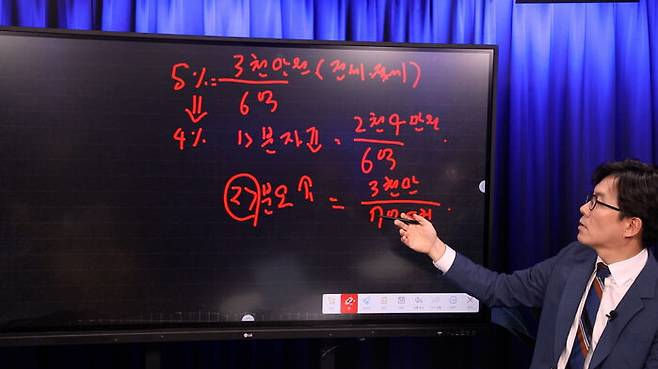 5% = 3천만원 (전세.월세)
6억
⇓
4% 1> 분자⇓ = 2천4만원
6억
2> 분모 ⇑ = 3천만
LG